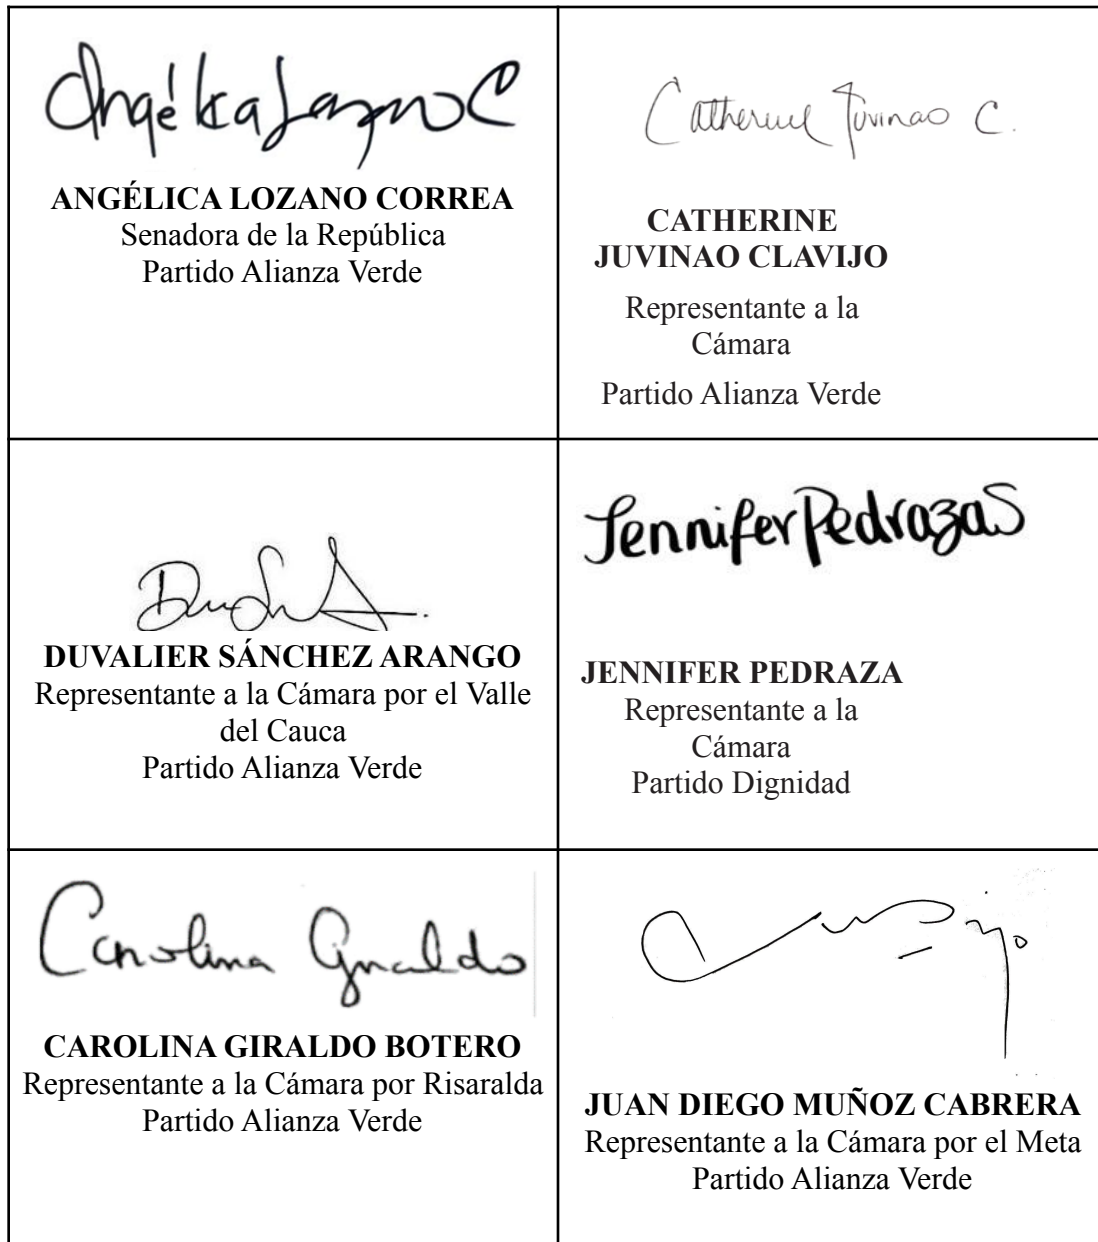 Angélica Lozano C
ANGÉLICA LOZANO CORREA
Senadora de la República
Partido Alianza Verde
Catherine Juvinao C.
CATHERINE
JUVINAO CLAVIJO
Representante a la
Cámara
Partido Alianza Verde
DUVALIER SÁNCHEZ ARANGO
Representante a la Cámara por el Valle
del Cauca
Partido Alianza Verde
Jennifer Pedraza S
JENNIFER PEDRAZA
Representante a la
Cámara
Partido Dignidad
Carolina Giraldo
CAROLINA GIRALDO BOTERO
Representante a la Cámara por Risaralda
Partido Alianza Verde
JUAN DIEGO MUÑOZ CABRERA
Representante a la Cámara por el Meta
Partido Alianza Verde